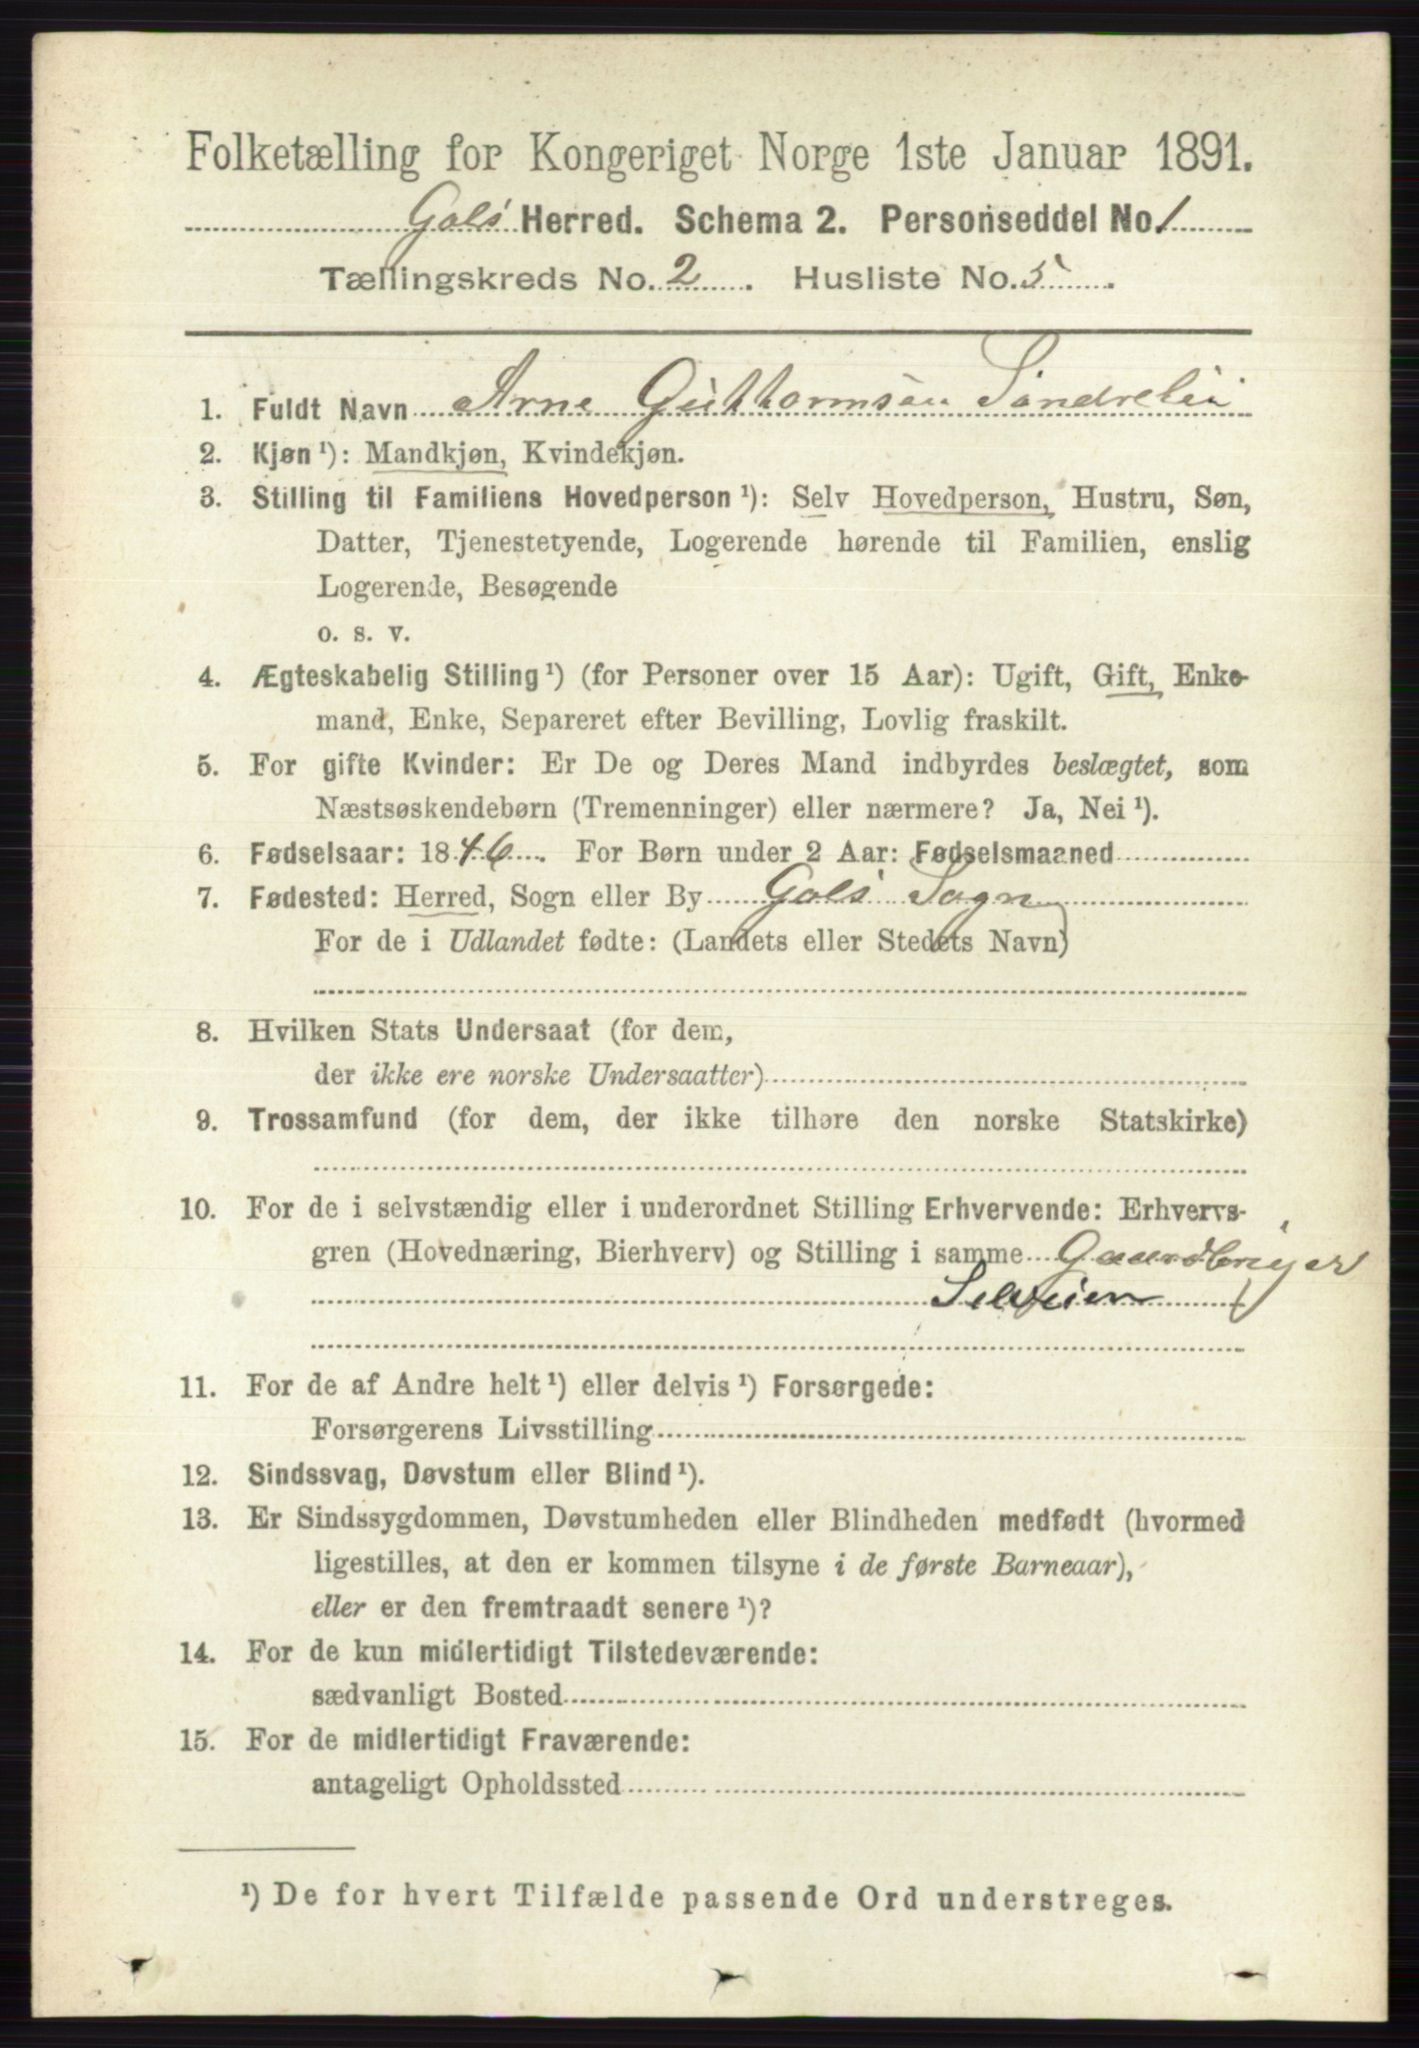 Folketælling for Kongeriget Norge 1ste Januar 1891.
Gols Herred. Schema 2. Personseddel No. 1
Tællingskreds No. 2. Husliste No. 5.
1. Fuldt Navn Arne Guttormsen Sandrelii
2. Kjøn ¹): Mandkjøn, Kvindekjøn.
3. Stilling til Familiens Hovedperson ¹): Selv Hovedperson, Hustru, Søn,
Datter, Tjenestetyende, Logerende hørende til Familien, enslig
Logerende, Besøgende
o. s. v.
4. Ægteskabelig Stilling ¹) (for Personer over 15 Aar): Ugift, Gift, Enke-
mand, Enke, Separeret efter Bevilling, Lovlig fraskilt.
5. For gifte Kvinder: Er De og Deres Mand indbyrdes beslægtet, som
Næstsøskendebørn (Tremenninger) eller nærmere? Ja, Nei ¹).
6. Fødselsaar: 1846. For Børn under 2 Aar: Fødselsmaaned
7. Fødested: Herred, Sogn eller By Gols Sogn
For de i Udlandet fødte: (Landets eller Stedets Navn)
8. Hvilken Stats Undersaat (for dem,
der ikke ere norske Undersaatter)
9. Trossamfund (for dem, der ikke tilhøre den norske Statskirke)
10. For de i selvstændig eller i underordnet Stilling Erhvervende: Erhvervs-
gren (Hovednæring, Bierhverv) og Stilling i samme Gaardbruger
Selveier
11. For de af Andre helt ¹) eller delvis ¹) Forsørgede:
Forsørgerens Livsstilling
12. Sindssvag, Døvstum eller Blind ¹).
13. Er Sindssygdommen, Døvstumheden eller Blindheden medfødt (hvormed
ligestilles, at den er kommen tilsyne i de første Barneaar),
eller er den fremtraadt senere ¹)?
14. For de kun midlertidigt Tilstedeværende:
sædvanligt Bosted
15. For de midlertidigt Fraværende:
antageligt Opholdssted
¹) De for hvert Tilfælde passende Ord understreges.